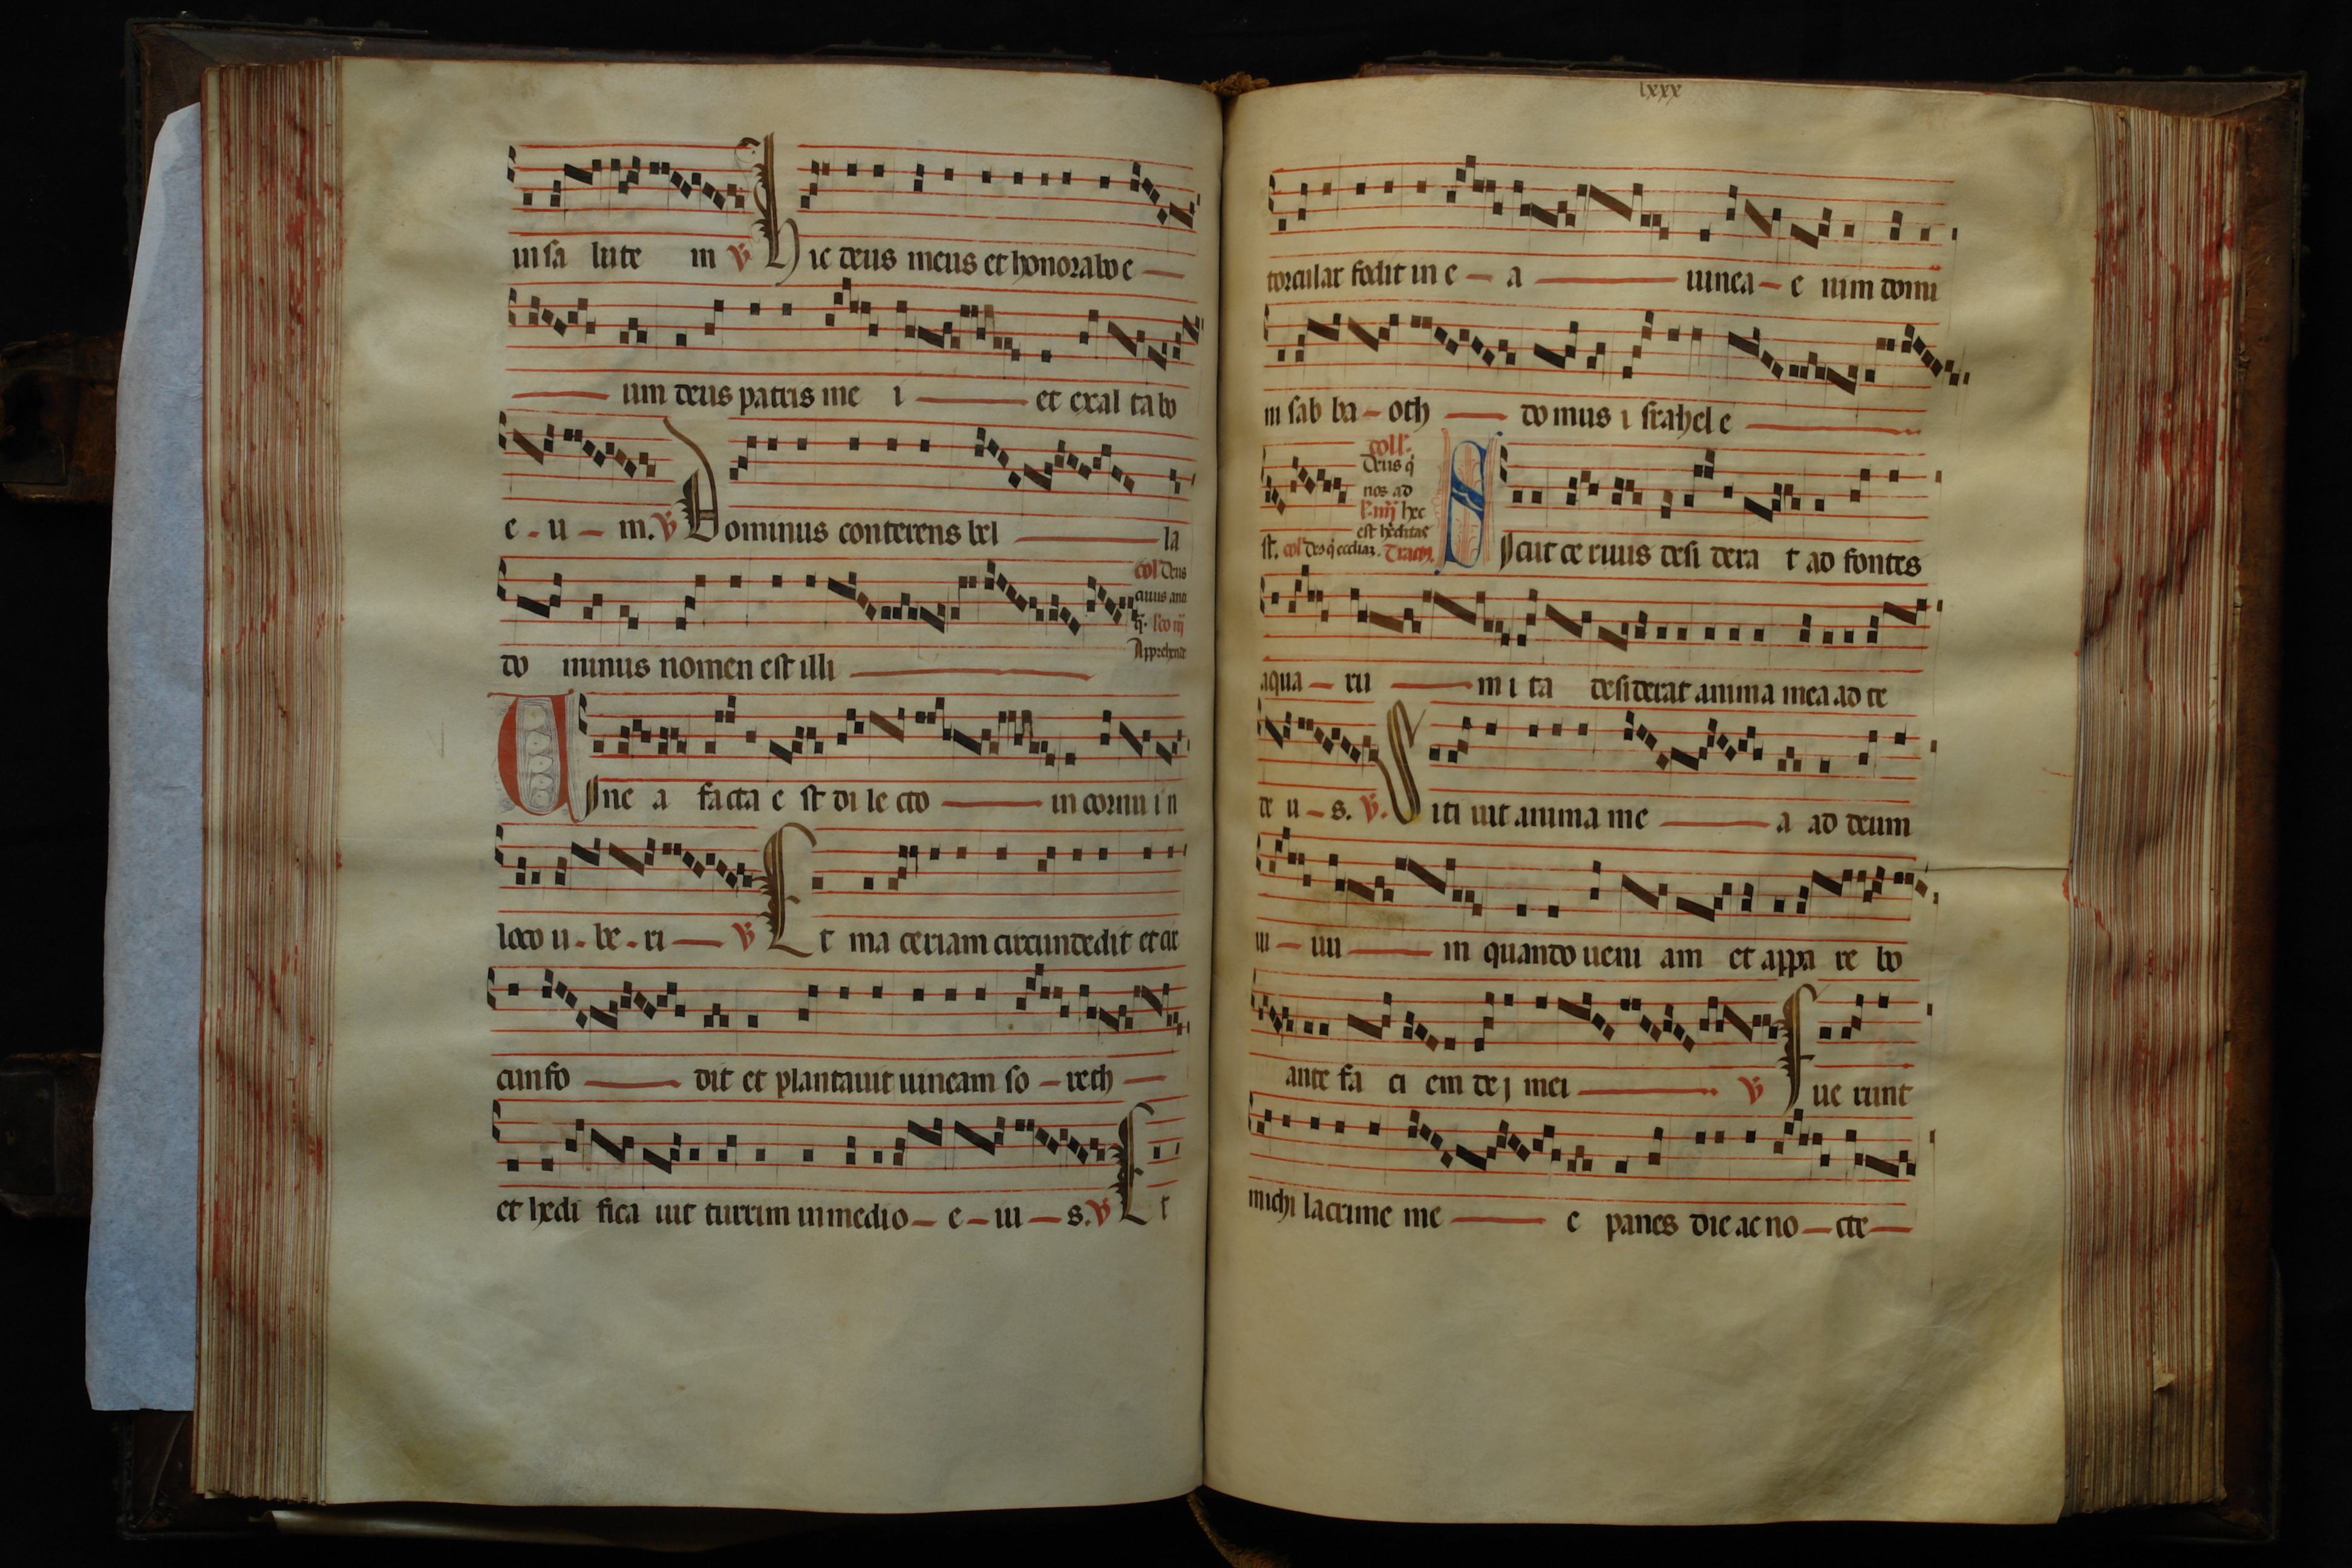 in sa lute m ℣ Hic deus meus et honorabo e
um deus patris me i et exal tabo
e - u - m. ℣ Dominus conterens bel la
col deus
cuius anti
Apprehende
do minus nomen est illi
Uine a facta e st di le cto in cornu i n
loco u - be - ri ℣ Et ma ceriam circumdedit et cir
cumfo dit et plantauit uineam so - rech
et hedi fica uit turrim in medio - e - iu - s. ℣ Et
lxxx
torcular fodit in e - a uinea - e nim domi
ni sab ba - oth do mus i srahel e
coll'.
Deus q̄
nos ad
hec
est hereditas
st. col deus q̄ eccliaz. Tract.
Sicut ce ruus desi dera t ad fontes
aqua - ru m i ta desiderat anima mea ad te
de u - s. ℣. Siti uit anima me a ad deum
ui - uu m quando ueni am et appa re bo
ante fa ci em dej mei ℣ Fue runt
michi lacrime me e panes die ac no - cte